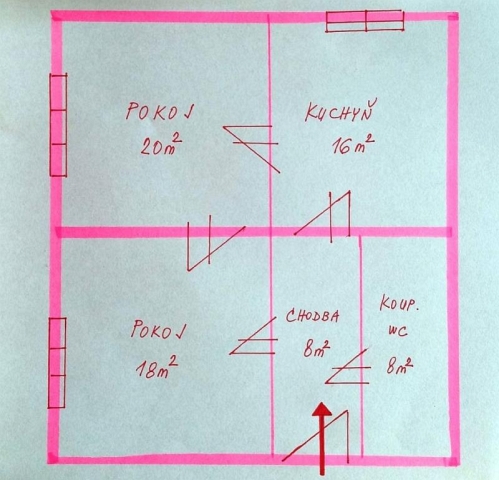 POKOJ
20m²
KUCHYŇ
16m²
POKOJ
18m²
CHODBA
8m²
KOUP.
WC
8m²